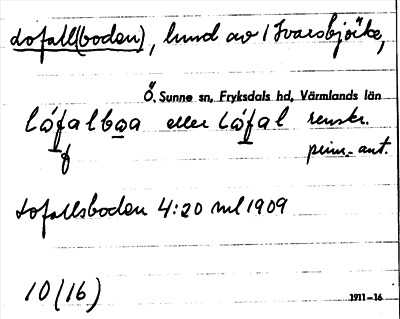 Lofall(boden), hmd av 1 Ivarsbjörke,
Ö. Sunne sn, Fryksdals hd, Värmlands län
lófalbɷa eller lófal renskr.
f prim.-ant.
Lofallsboden 4:20 ml 1909
10(16) 1911-16